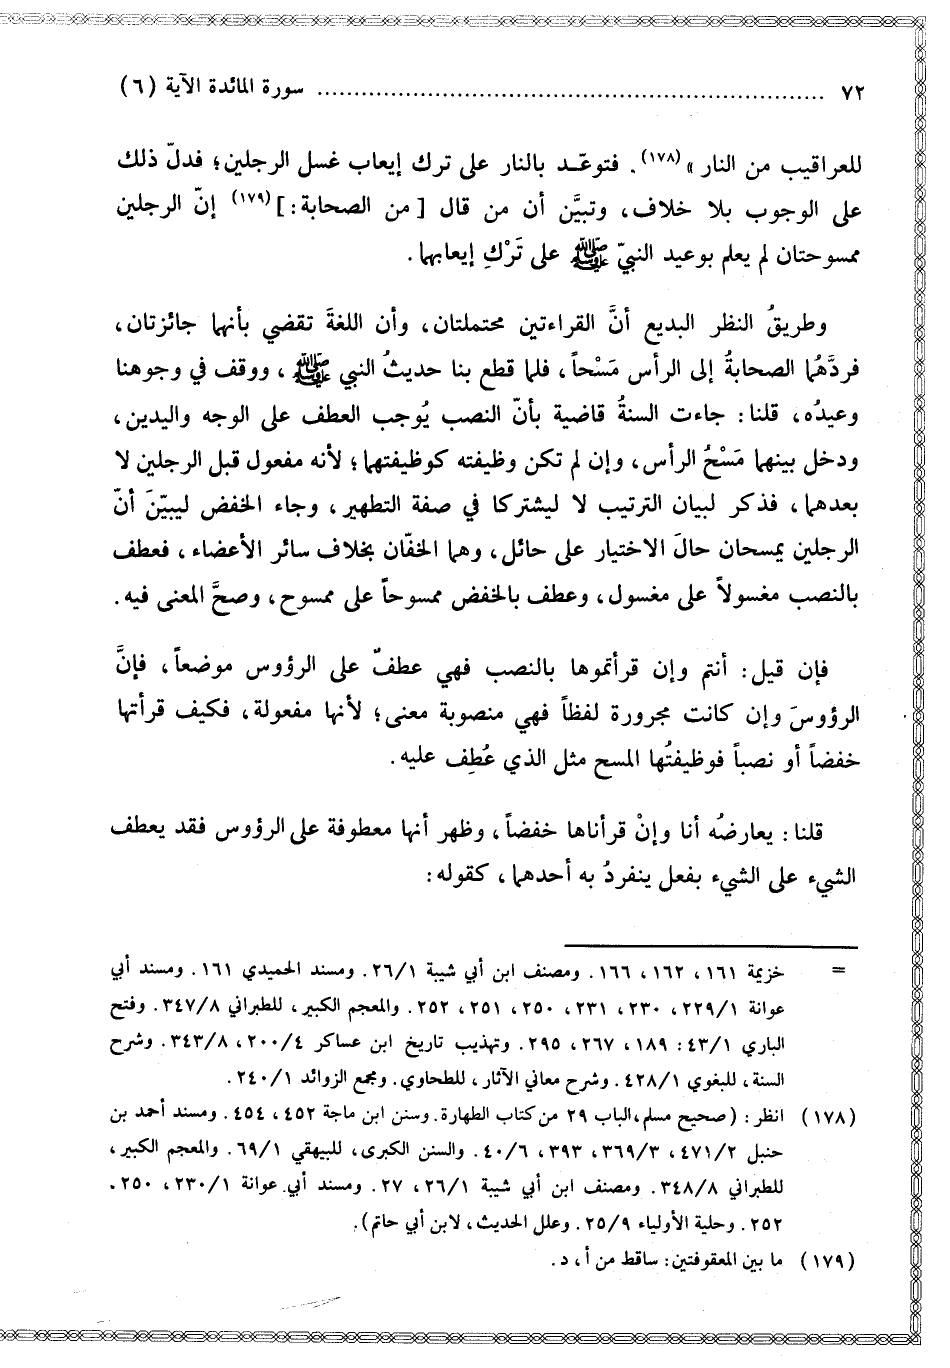 ٧٢ ................................................................ سورة المائدة الآية (٦)
للعراقيب من النار» (١٧٨). فتوعّـد بالنار على ترك إيعاب غسل الرجلين؛ فدلّ ذلك
على الوجوب بلا خلاف، وتبيَّن أن من قال [من الصحابة:] (١٧٩) إنّ الرجلين
ممسوحتان لم يعلم بوعيد النبيّ ﷺ على تَرْكِ إيعابهما.
وطريقُ النظر البديع أنَّ القراءتين محتملتان، وأن اللغةَ تقضي بأنهما جائزتان،
فردَّهُما الصحابةُ إلى الرأس مَسْحاً، فلما قطع بنا حديثُ النبي ﷺ، ووقف في وجوهنا
وعيدُه، قلنا: جاءت السنةُ قاضية بأنّ النصب يُوجب العطف على الوجه واليدين،
ودخل بينهما مَسْحُ الرأس، وإن لم تكن وظيفته كوظيفتهما؛ لأنه مفعول قبل الرجلين لا
بعدهما، فذكر لبيان الترتيب لا ليشتركا في صفة التطهير، وجاء الخفض ليبيّنَ أنّ
الرجلين يمسحان حالَ الاختيار على حائل، وهما الخفّان بخلاف سائر الأعضاء، فعطف
بالنصب مغسولاً على مغسول، وعطف بالخفض ممسوحاً على ممسوح، وصحَّ المعنى فيه.
فإن قيل: أنتم وإن قرأتموها بالنصب فهي عطفٌ على الرؤوس موضعاً، فإنَّ
الرؤوسَ وإن كانت مجرورة لفظاً فهي منصوبة معنى؛ لأنها مفعولة، فكيف قرأتها
خفضاً أو نصباً فوظيفتُها المسح مثل الذي عُطِف عليه.
قلنا: يعارضُه أنا وإنْ قرأناها خفضاً، وظهر أنها معطوفة على الرؤوس فقد يعطف
الشيء على الشيء بفعل ينفردُ به أحدهما، كقوله:
= خزيمة ١٦١، ١٦٢، ١٦٦. ومصنف ابن أبي شيبة ٢٦/١. ومسند الحميدي ١٦١. ومسند أبي
عوانة ٢٢٩/١، ٢٣٠، ٢٣١، ٢٥٠، ٢٥١، ٢٥٢. والمعجم الكبير، للطبراني ٣٤٧/٨. وفتح
الباري ٤٣/١: ١٨٩، ٢٦٧، ٢٩٥. وتهذيب تاريخ ابن عساكر ٢٠٠/٤، ٣٤٣/٨. وشرح
السنة، للبغوي ٤٢٨/١. وشرح معاني الآثار، للطحاوي. ومجمع الزوائد ٢٤٠/١.
(١٧٨) انظر: (صحيح مسلم، الباب ٢٩ من كتاب الطهارة. وسنن ابن ماجة ٤٥٢، ٤٥٤. ومسند أحمد بن
حنبل ٤٧١/٢، ٣٦٩/٣، ٣٩٣، ٤٠/٦. والسنن الكبرى، للبيهقي ٦٩/١. والمعجم الكبير،
للطبراني ٣٤٨/٨. ومصنف ابن أبي شيبة ٢٦/١، ٢٧. ومسند أبي عوانة ٢٣٠/١، ٢٥٠.
٢٥٢. وحلية الأولياء ٢٥/٩. وعلل الحديث، لابن أبي حاتم).
(١٧٩) ما بين المعقوفتين: ساقط من أ، د.